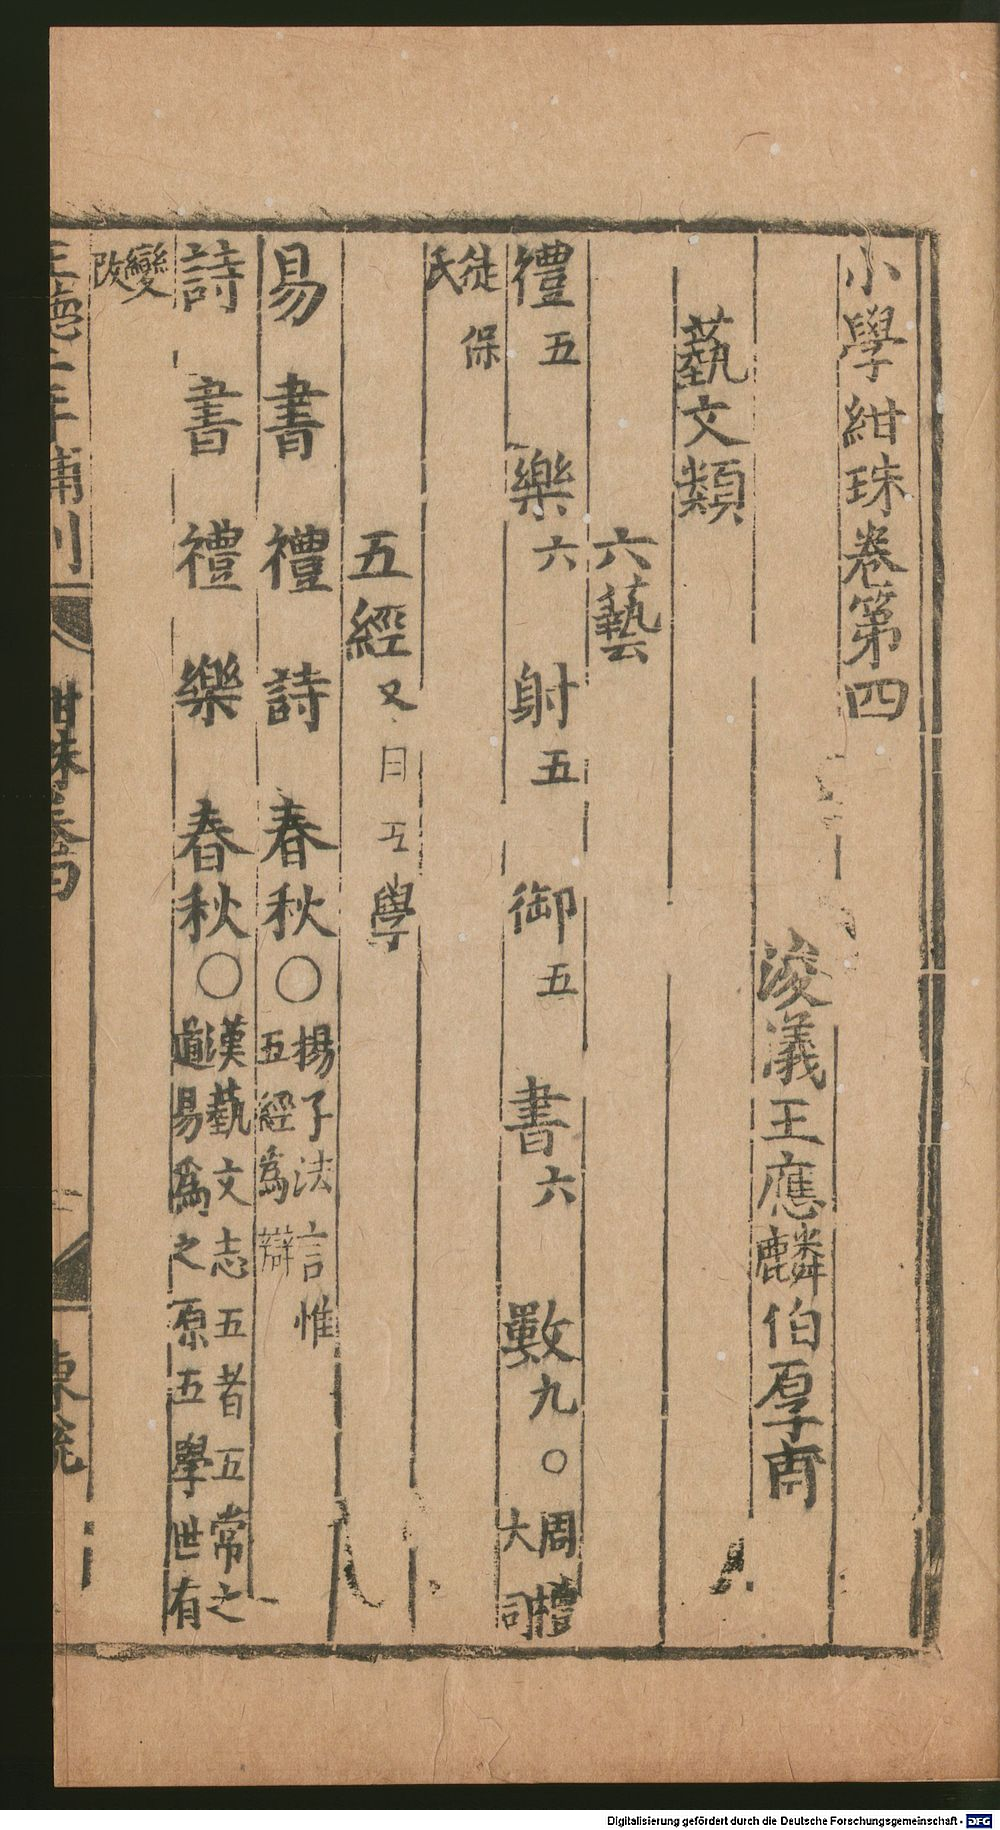 小學紺珠卷第四
浚儀王應麟伯厚甫
藝文類
六藝
禮五 樂六 射五 御五 書六 數九○周禮大司
徒保氏
五經又曰五學
易 書 禮 詩 春秋○揚子法言惟五經為辯
詩 書 禮 樂 春秋○漢藝文志五者五常之道易為之原五學世有
變改
紺珠卷四
Digitalisierung gefördert durch die Deutsche Forschungsgemeinschaft - DFG